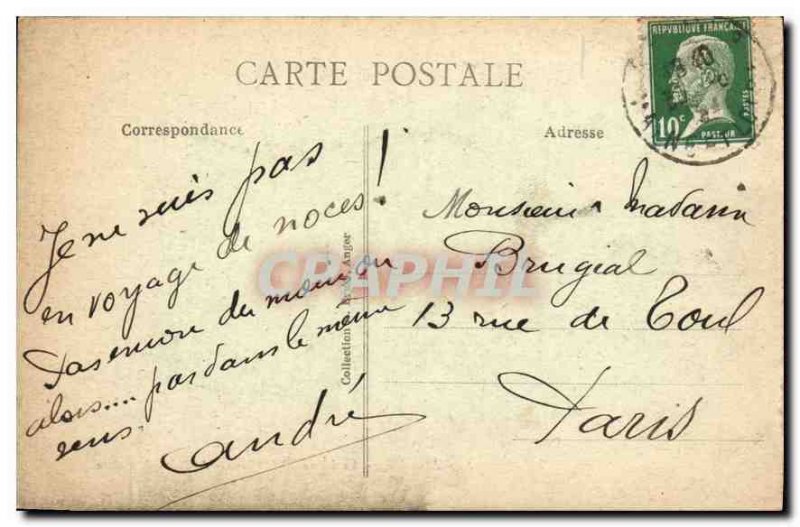 CARTE POSTALE
Correspondance
Adresse
REPUBLIQUE FRANÇAISE
POSTES
10c
PASTEUR
Je ne suis pas
en voyage de noces!
pas encore du moins ou
alors.... pas dans le même
sens.
André
Monsieur Madame
Brugial
13 rue de Toul
Paris
Collection Anger
CPAPHIL